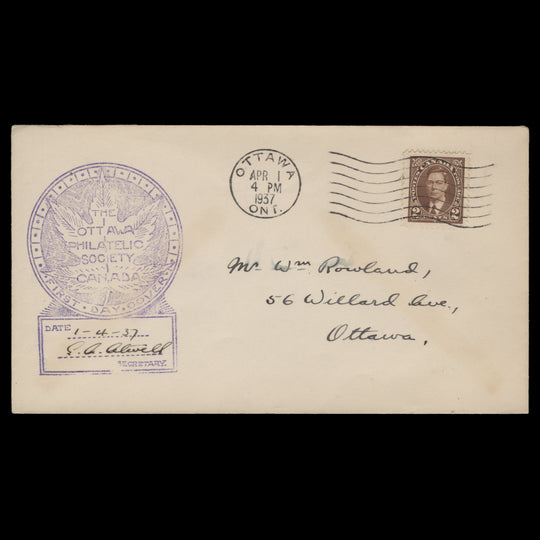 THE
OTTAWA
PHILATELIC
SOCIETY
CANADA
FIRST · DAY · COVER
DATE 1-4-37
SECRETARY.
OTTAWA
APR 1
4 PM
1937
ONT.
POSTES CANADA POSTAGE
2 2
Mr. Wm Rowland,
56 Willard Ave,
Ottawa,